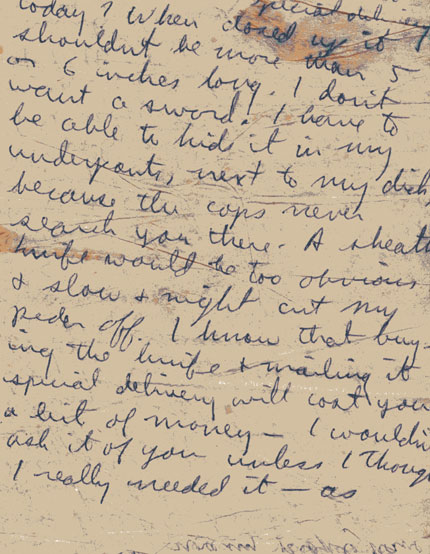 special delivery
today & when closed up it
shouldn't be more than 5
or 6 inches long. I don't
want a sword. I have to
be able to hide it in my
underpants, next to my dick,
because the cops never
search you there. A sheath
knife would be too obvious
& slow & might cut my
peder off. I know that buy-
ing the knife & mailing it
special delivery will cost you
a bit of money — I wouldn't
ask it of you unless I thought
I really needed it — as